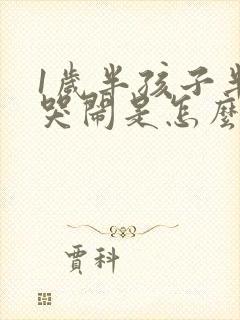 1歲半孩子半
哭鬧是怎麼
賈科